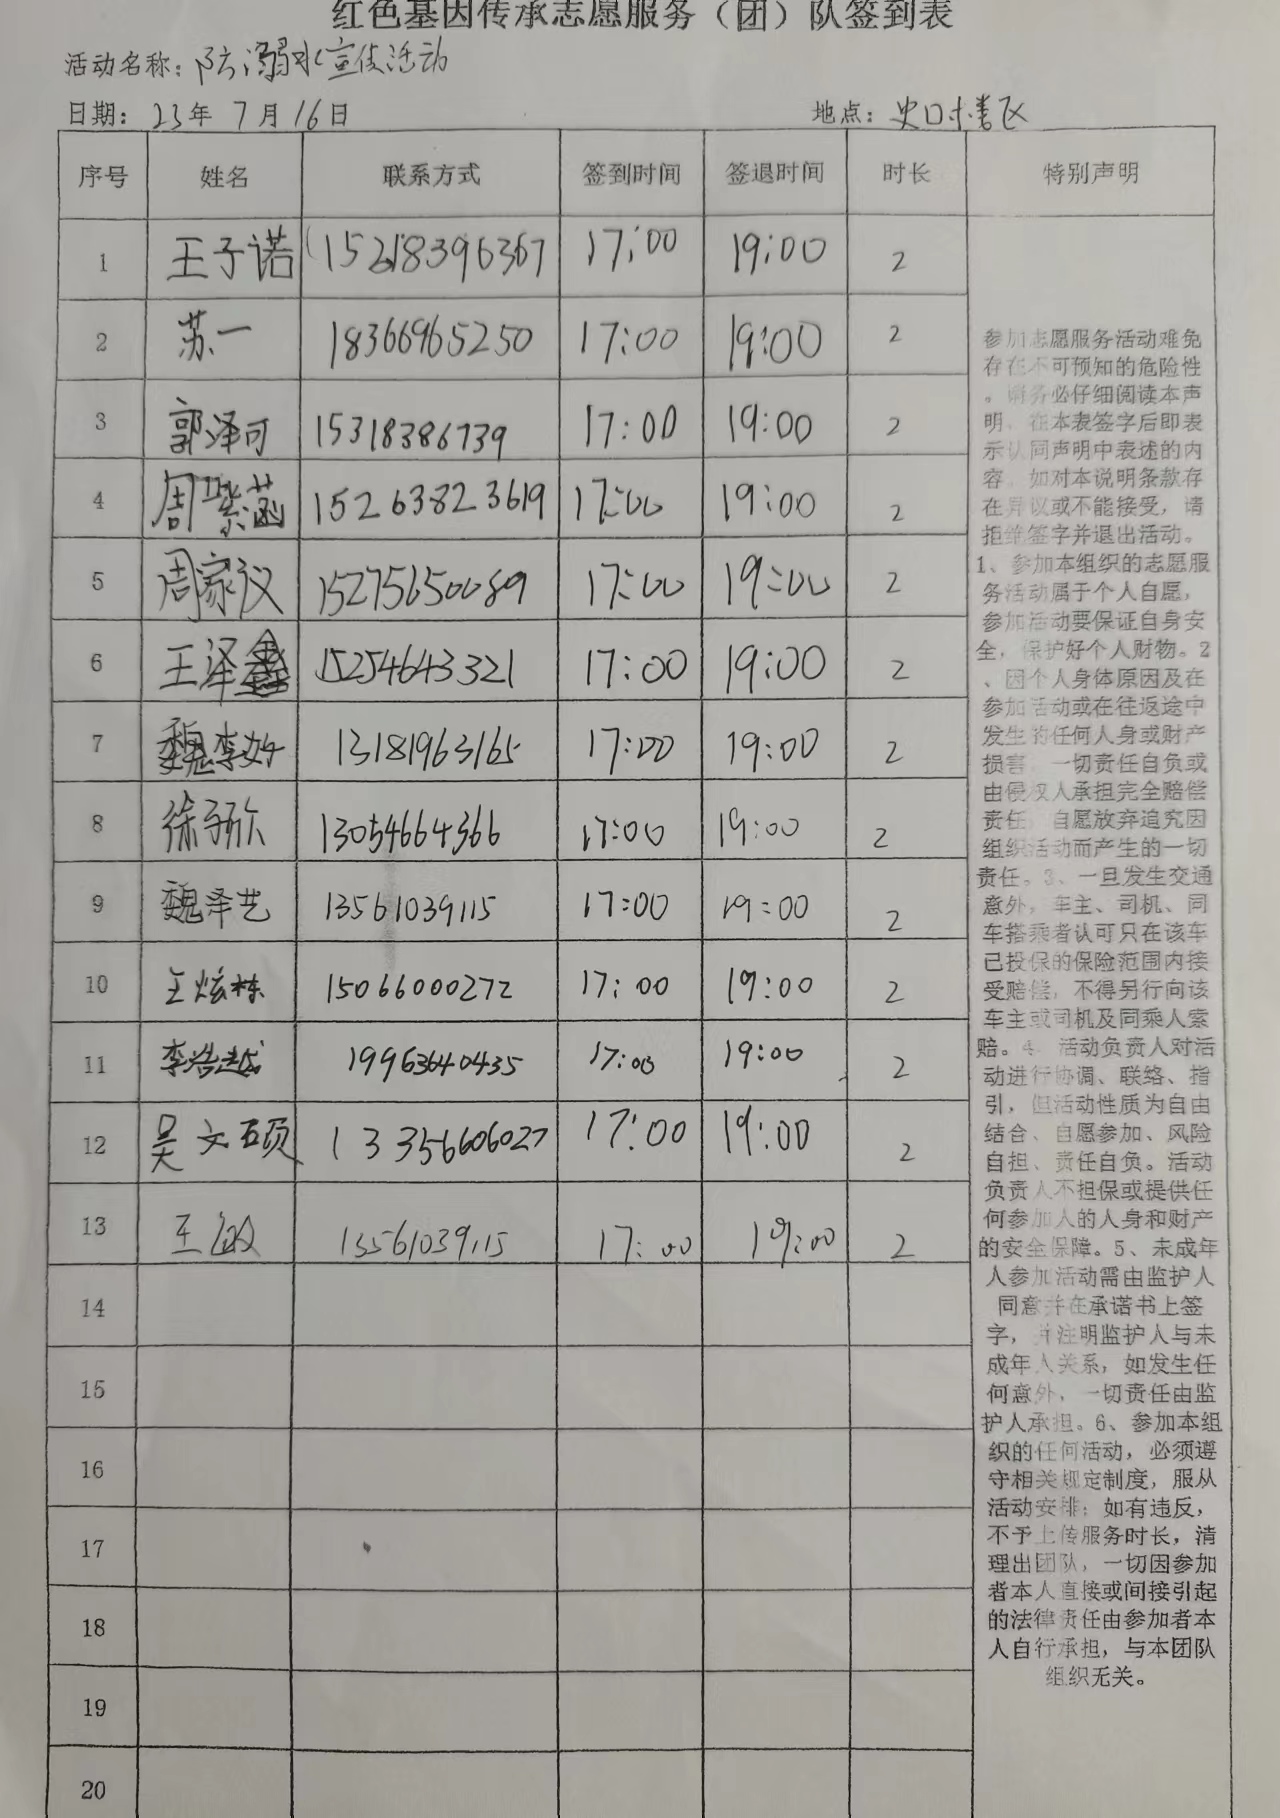 红色基因传承志愿服务（团）队签到表
活动名称：防溺水宣传活动
日期：23年7月16日 地点：史口城区
序号 姓名 联系方式 签到时间 签退时间 时长 特别声明
1 王子诺 15218396367 17:00 19:00 2
2 苏一 18366965250 17:00 19:00 2
3 郭泽可 15318386739 17:00 19:00 2
4 周紫菡 15263823619 17:00 19:00 2
5 周家仪 15275650089 17:00 19:00 2
6 王泽鑫 15254643321 17:00 19:00 2
7 魏李好 13181963165 17:00 19:00 2
8 徐子欣 13054664366 17:00 19:00 2
9 魏泽艺 13561039115 17:00 19:00 2
10 王炫栋 15066000272 17:00 19:00 2
11 李浩越 19963640435 17:00 19:00 2
12 吴文硕 13356606027 17:00 19:00 2
13 王敏 13561039115 17:00 19:00 2
14
15
16
17
18
19
20
参加志愿服务活动难免
存在不可预知的危险性
。请务必仔细阅读本声
明，在本表签字后即表
示认同声明中表述的内
容，如对本说明条款存
在异议或不能接受，请
拒绝签字并退出活动。
1、参加本组织的志愿服
务活动属于个人自愿，
参加活动要保证自身安
全，保护好个人财物。2
、因个人身体原因及在
参加活动或在往返途中
发生的任何人身或财产
损害，一切责任自负或
由侵权人承担完全赔偿
责任，自愿放弃追究因
组织活动而产生的一切
责任。3、一旦发生交通
意外，车主、司机、同
车搭乘者认可只在该车
已投保的保险范围内接
受赔偿，不得另行向该
车主或司机及同乘人索
赔。4、活动负责人对活
动进行协调、联络、指
引，但活动性质为自由
结合、自愿参加、风险
自担、责任自负。活动
负责人不担保或提供任
何参加人的人身和财产
的安全保障。5、未成年
人参加活动需由监护人
同意并在承诺书上签
字，并注明监护人与未
成年人关系，如发生任
何意外，一切责任由监
护人承担。6、参加本组
织的任何活动，必须遵
守相关规定制度，服从
活动安排；如有违反，
不予上传服务时长，清
理出团队，一切因参加
者本人直接或间接引起
的法律责任由参加者本
人自行承担，与本团队
组织无关。